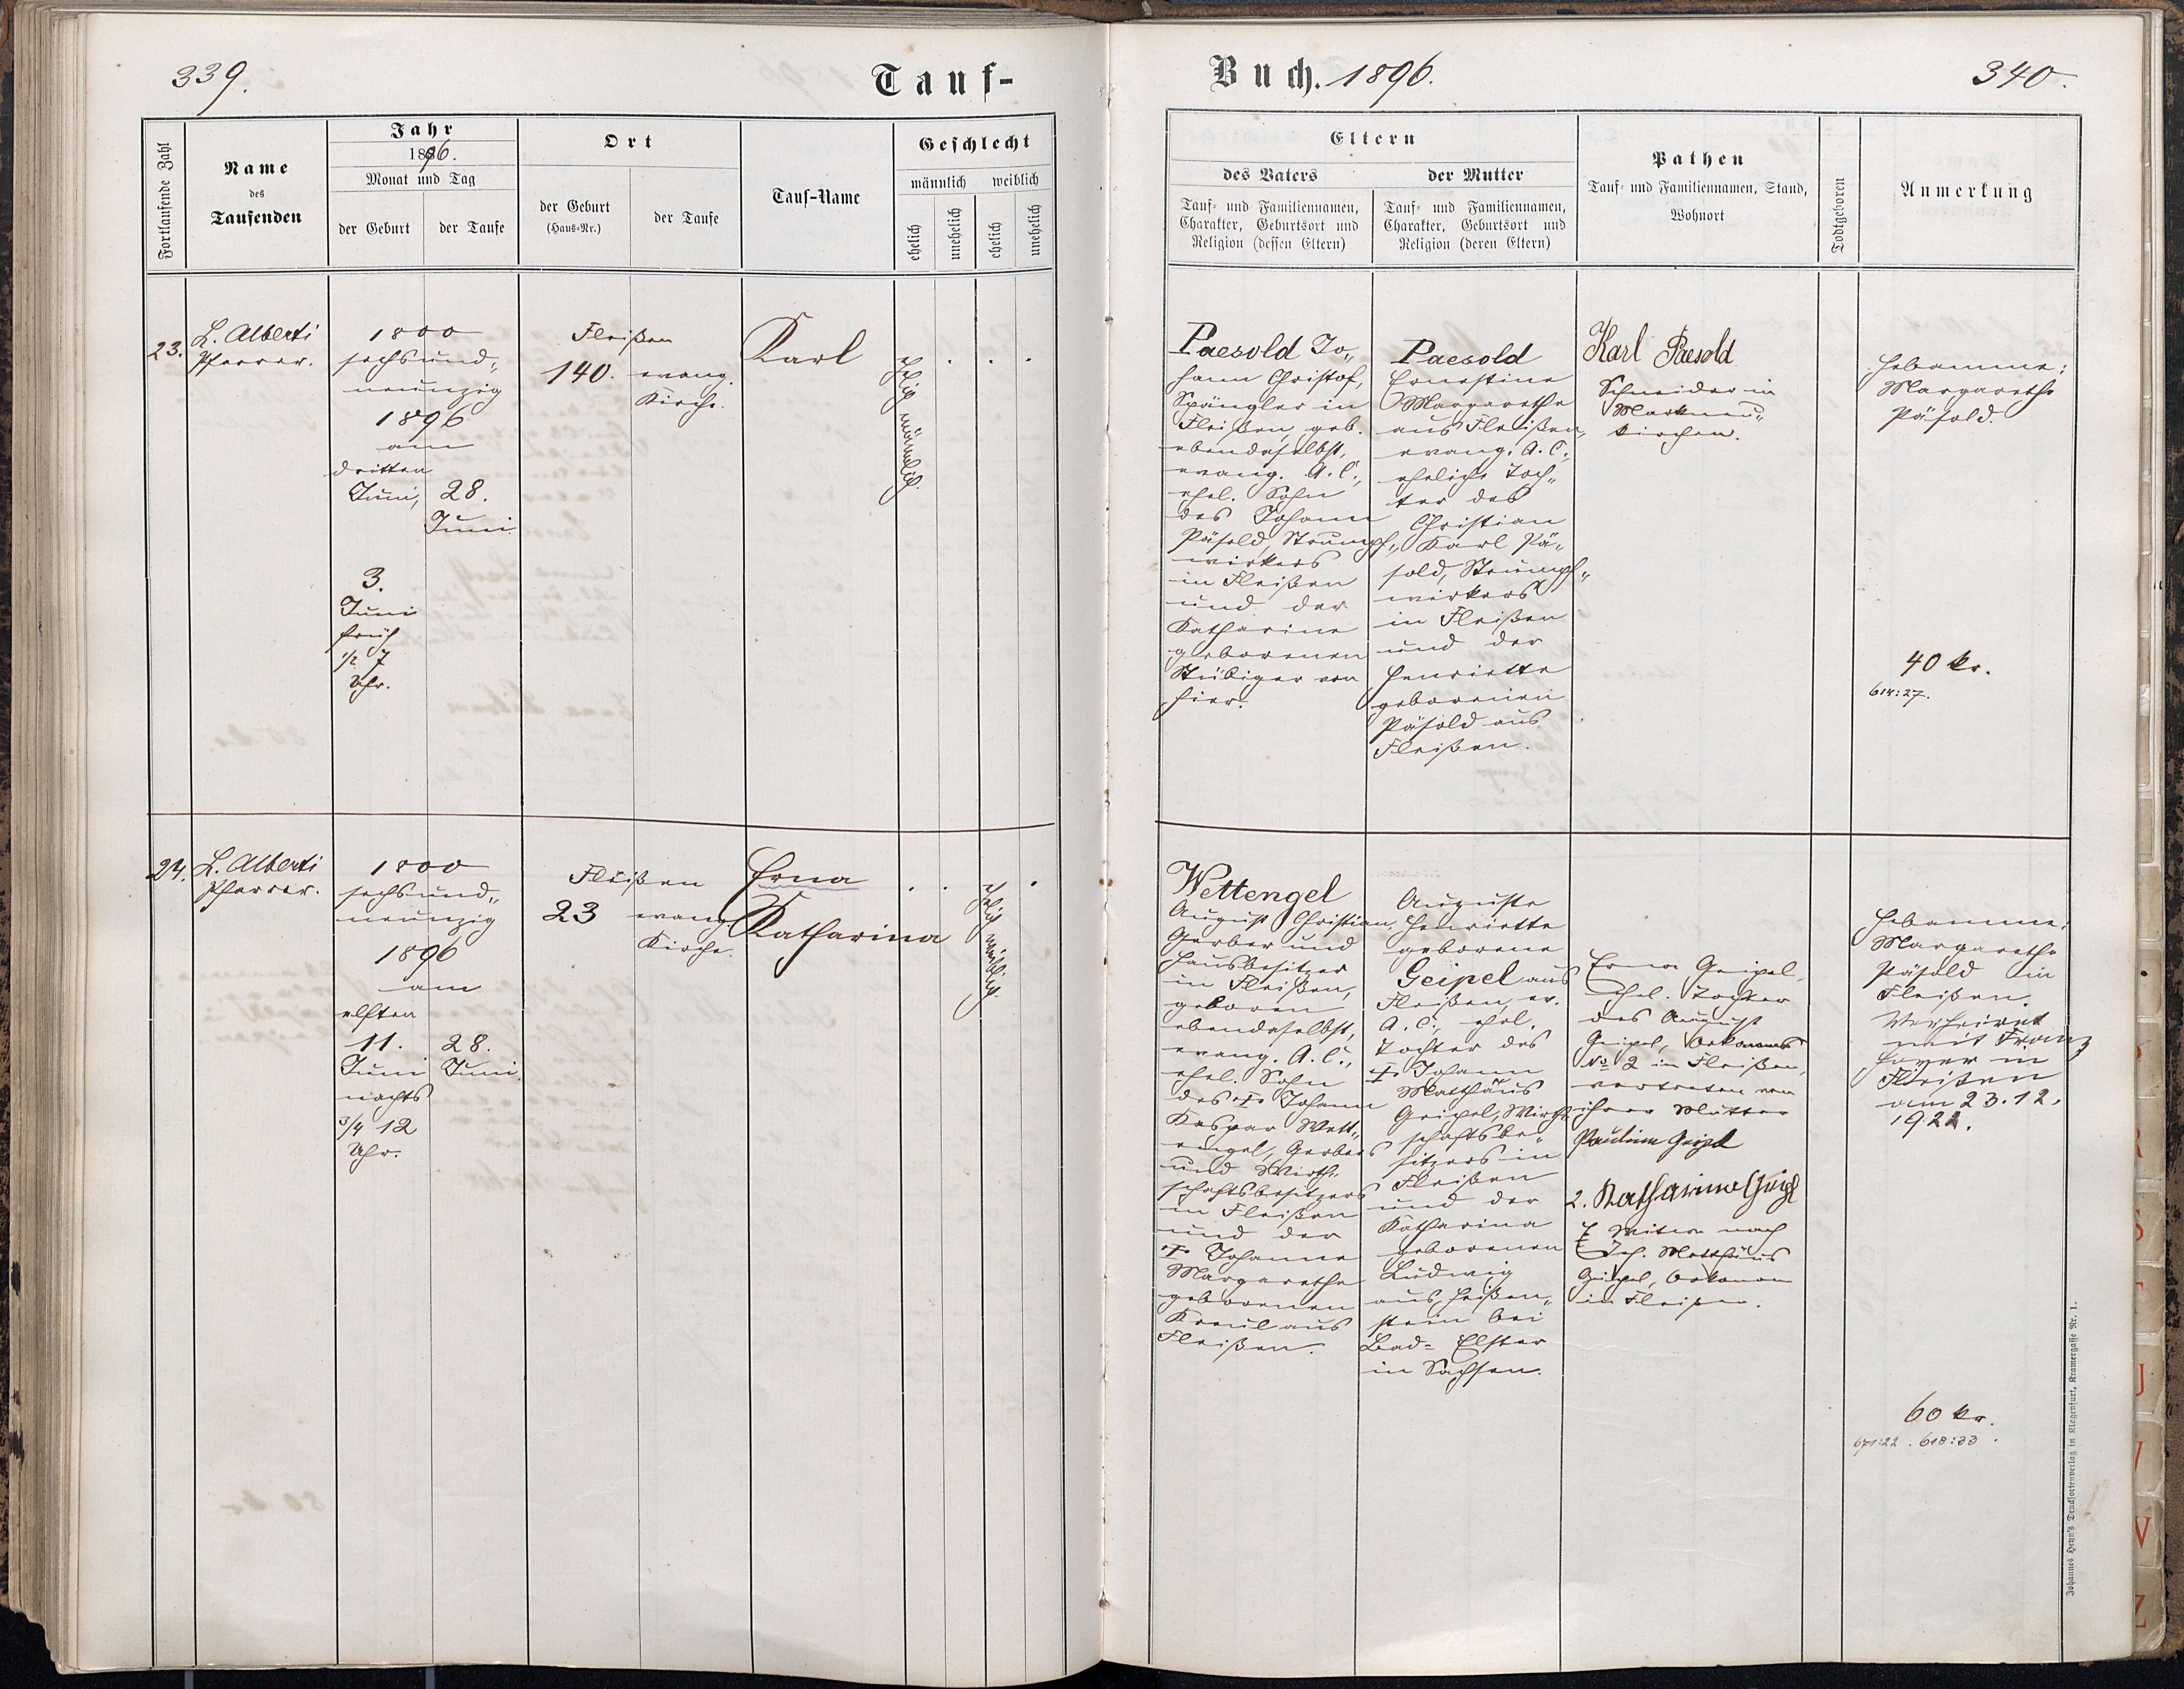 339.
Tauf-
Fortlaufende Zahl
Name
des
Taufenden
Jahr
1896.
Monat und Tag
der Geburt
der Taufe
Ort
der Geburt
(Haus-Nr.)
der Taufe
Tauf-Name
Geschlecht
männlich
weiblich
ehelich
unehelich
ehelich
unehelich
23.
L. Alberti
Pfarrer.
1800
sechsund-
neunzig
1896
am
dritten
Juni,
28.
Juni.
3.
Juni
früh
1/2 7
Uhr.
Fleißen
140.
evang.
Kirche.
Karl
Ehelich männlich.
24.
L. Alberti
Pfarrer.
1800
sechsund-
neunzig
1896
am
elften
11.
28.
Juni
Juni.
nachts
3/4 12
Uhr.
Fleißen
23
evang.
Kirche.
Erna
Katharina
Ehelich weiblich.
Buch. 1896.
340.
Eltern
des Vaters
Tauf- und Familiennamen,
Charakter, Geburtsort und
Religion (dessen Eltern)
der Mutter
Tauf- und Familiennamen,
Charakter, Geburtsort und
Religion (deren Eltern)
Pathen
Tauf- und Familiennamen, Stand,
Wohnort
Todtgeboren
Anmerkung
Paesold Jo-
hann Christof,
Spängler in
Fleißen, geb.
ebendaselbst,
evang. A. C.,
ehel. Sohn
des Johann
Päsold, Strumpf-
wirkers
in Fleißen
und der
Katharine
geborenen
Stübiger von
hier.
Paesold
Ernestine
Margarethe
aus Fleißen,
evang. A. C.,
eheliche Toch-
ter des
Christian
Karl Pä-
sold, Strumpf-
wirkers
in Fleißen
und der
Henriette
geborenen
Päsold aus
Fleißen.
Karl Paesold
Schneider in
Markneu-
kirchen.
Hebamme:
Margarethe
Päsold.
40 kr.
614:27.
Wettengel
August Christian,
Gerber und
Hausbesitzer
in Fleißen,
geboren
ebendaselbst,
evang. A. C.,
ehel. Sohn
des + Johann
Kaspar Wett-
engel, Gerbers
und Wirth-
schaftsbesitzers
in Fleißen
und der
+ Johanne
Margarethe
geborenen
Kreul aus
Fleißen.
Auguste
Henriette
geborene
Geipel aus
Fleißen, ev.
A. C., ehel.
Tochter des
+ Johann
Matthäus
Geipel, Wirth-
schaftsbe-
sitzers in
Fleißen
und der
Katharina
geborenen
Ludwig
aus Heißen-
stein bei
Bad-Elster
in Sachsen.
Erna Geipel,
ehel. Tochter
des August
Geipel, Oekonoms
No 2 in Fleißen,
vertreten von
ihrer Mutter
Pauline Geipel
2. Katharina Geipel
Witwe nach
Joh. Matthäus
Geipel, Oekonom
in Fleißen.
Hebamme:
Margarethe
Päsold in
Fleißen.
Verheirat
mit Franz
in
Fleißen
am 23.12.
1922.
60 kr.
671:22. 618:33.
Johannes Heyn's Drucksortenverlag in Klagenfurt, Kramergasse Nr. 1.